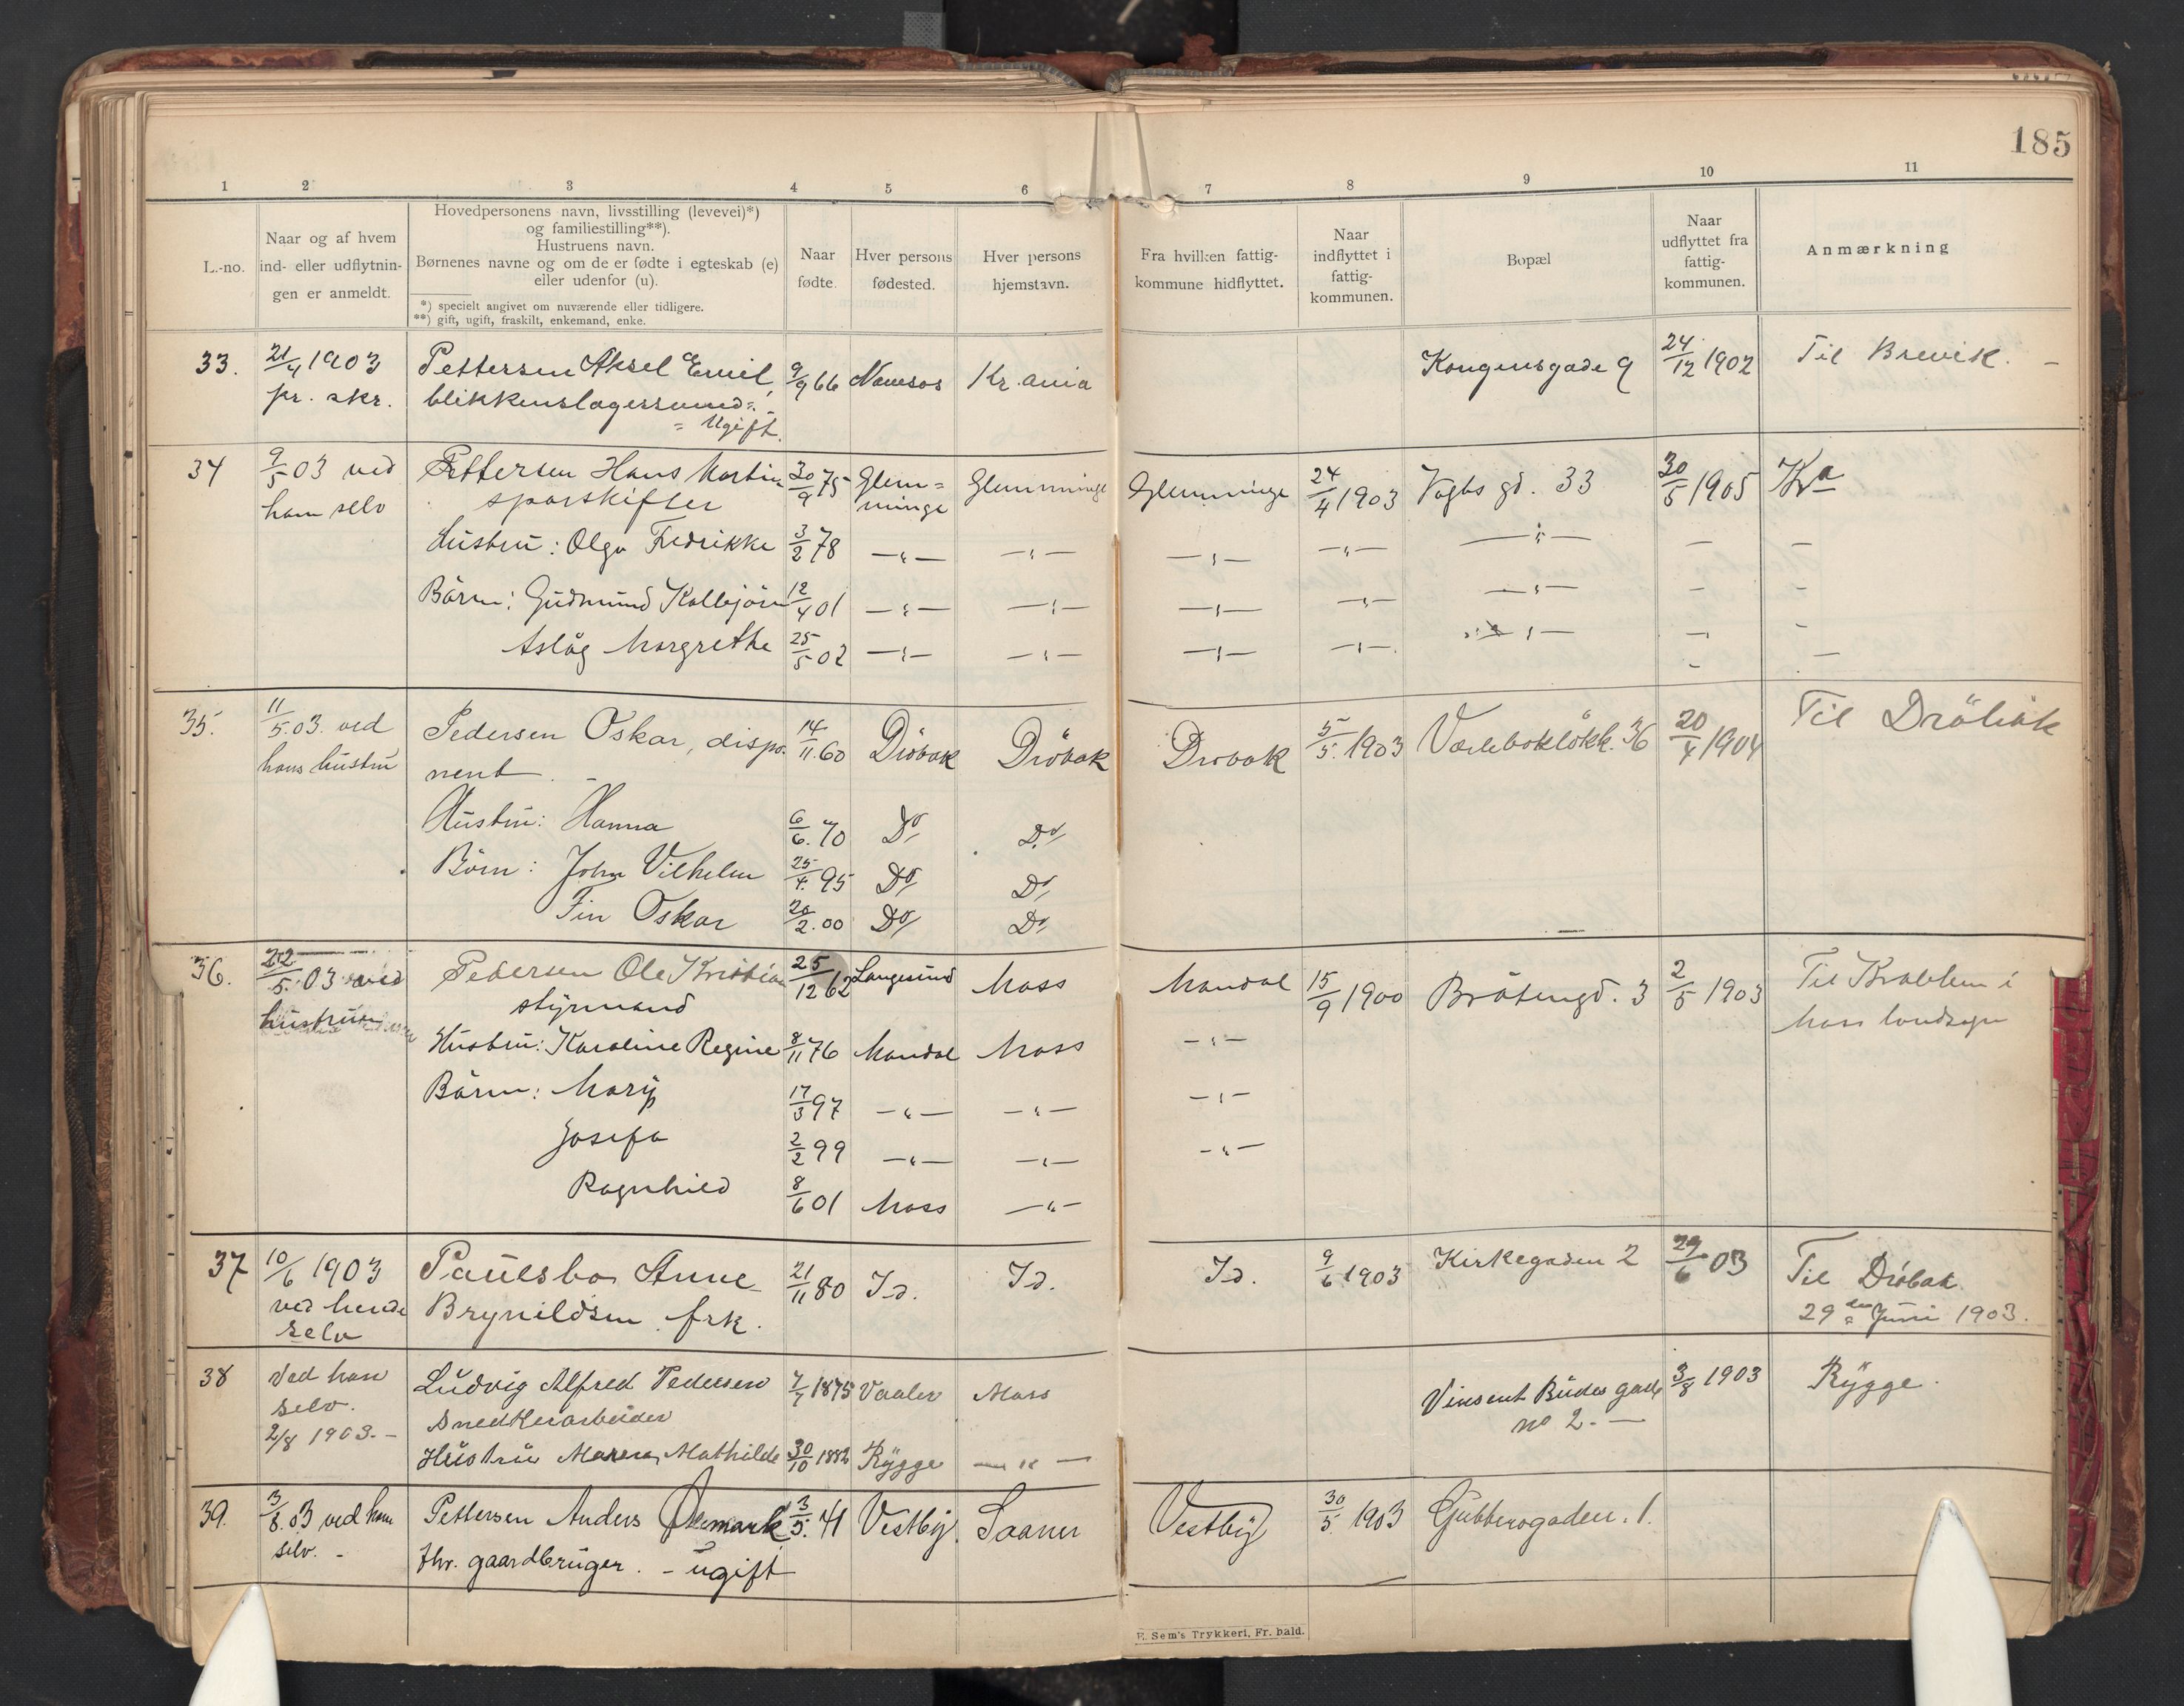 185
1 2 3 4 5 6 7 8 9 10 11
L.-no.
Naar og af hvem
ind- eller udflytnin-
gen er anmeldt.
Hovedpersonens navn, livsstilling (levevei)*)
og familiestilling**).
Hustruens navn.
Børnenes navne og om de er fødte i egteskab (e)
eller udenfor (u).
*) specielt angivet om nuværende eller tidligere.
**) gift, ugift, fraskilt, enkemand, enke.
Naar
fødte.
Hver persons
fødested.
Hver persons
hjemstavn.
Fra hvilken fattig-
kommune hidflyttet.
Naar
indflyttet i
fattig-
kommunen.
Bopæl
Naar
udflyttet fra
fattig-
kommunen.
Anmærkning
33. 21/4 1903 Pettersen Aksel Emil, 9/9 66 Namsos Kr.ania Kongensgade 9 24/12 1902 Til Brevik. —
pr. skr. blikkenslagersvend.
= Ugift.
34 9/5 03 ved Pettersen Hans Martin 30/9 75 Glem= Glemminge Glemminge 24/4 1903 Vogts gd. 33 30/5 1905 Kra
ham selv sporskifter minge
Hustru: Olga Fredrikke 3/2 78 —„— —„— —„— —„— —„— — —
Börn: Gudmund Kolbjörn 12/4 01 —„— —„— —„— —„— —„— — —
Aslåg Margrethe 25/5 02 —„— —„— —„— —„— —„— — —
35. 11/5. 03. ved Pedersen Oskar, dispo- 14/11. 60 Dröbak Dröbak Drobak 5/5. 1903 Værlebakløkk. 36 20/4 1904 Til Dröbak
hans hustru nent. —
Hustru: Hanna 6/6. 70 Do Do
Börn: John Vilhelm 25/4. 95 Do Do
Fin Oskar 20/2. 00 Do Do
36. 22/5. 03 ved Pedersen Ole Kristian 25/12 62 Langesund Moss Mandal 15/9 1900 Bråtengd. 3 2/5 1903 Til Krabbem i
hustrun styrmand Moss landsogn
Hustru: Karoline Regine 8/11 76 Mandal Moss —„—
Börn: Mary 17/3 97 —„— —„— —„—
Josefa 2/2 99 —„— —„— —„—
Ragnhild 8/6 01 Moss —„—
37 10/6 1903 Paulsbo Anne 21/11 80 Id. Id. Id. 9/6 1903 Kirkegaden 2 29/6 03 Til Dröbak
ved hende Brynildsen frk. 29 de Juni 1903.
selv
38 Ved ham Ludvig Alfred Pedersen 7/7 1875 Vaaler Moss Vinsent Budes gade 3/8 1903 Rygge.
selv. Snedkerarbeider no 2. —
2/8 1903. — Hustru Maren Mathilde 30/10 1882 Rygge — „ —
39. 3/8. 03 ved ham Pettersen Anders Ølemark 3/5. 41 Vestby. Saaner Vestby 30/5. 1903 Gubberogaden. 1.
selv. — fhv. gaardbruger. — ugift
E. Sem's Trykkeri, Fr. hald.